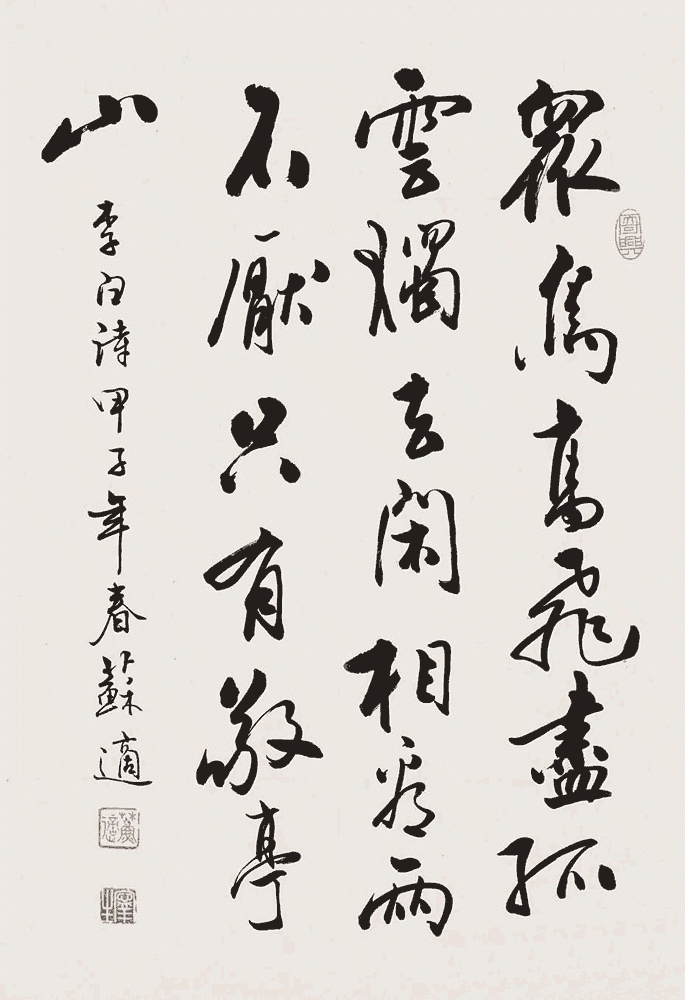 衆鳥高飛盡孤
雲獨去閑相看兩
不厭只有敬亭
山
李白詩甲子年春蘇適
蘇適